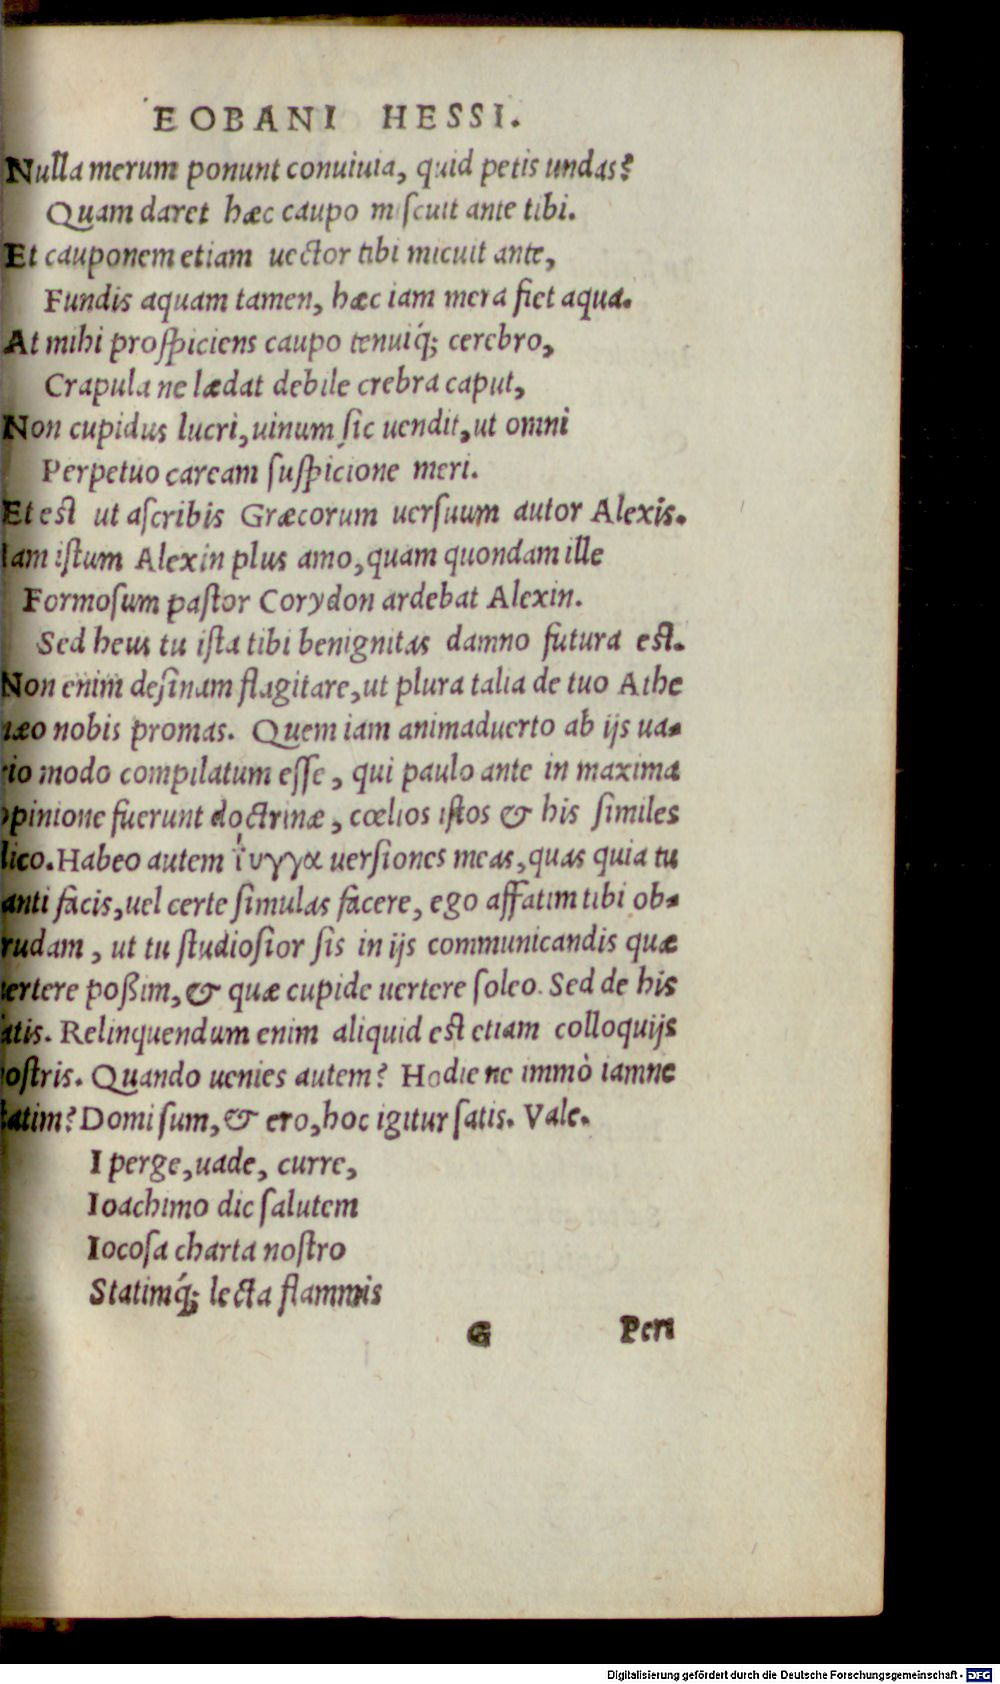 EOBANI HESSI.
Nulla merum ponunt conuiuia, quid petis undas?
Quam daret hæc caupo miscuit ante tibi.
Et cauponem etiam uector tibi micuit ante,
Fundis aquam tamen, hæc iam mera fiet aqua.
At mihi prospiciens caupo tenuiq́; cerebro,
Crapula ne lædat debile crebra caput,
Non cupidus lucri, uinum sic uendit, ut omni
Perpetuo caream suspicione meri.
Et est ut ascribis Græcorum uersuum autor Alexis.
Iam istum Alexin plus amo, quam quondam ille
Formosum pastor Corydon ardebat Alexin.
Sed heus tu ista tibi benignitas damno futura est.
Non enim desinam flagitare, ut plura talia de tuo Athe
næo nobis promas. Quem iam animaduerto ab ijs ua-
rio modo compilatum esse, qui paulo ante in maxima
opinione fuerunt doctrinæ, cœlios istos & his similes
dico. Habeo autem ἴυγγα uersiones meas, quas quia tu
tanti facis, uel certe simulas facere, ego affatim tibi ob-
trudam, ut tu studiosior sis in ijs communicandis quæ
uertere poßim, & quæ cupide uertere soleo. Sed de his
satis. Relinquendum enim aliquid est etiam colloquijs
nostris. Quando uenies autem? Hodie ne immò iamne
statim? Domi sum, & ero, hoc igitur satis. Vale.
I perge, uade, curre,
Ioachimo dic salutem
Iocosa charta nostro
Statimq́; lecta flammis
G Peri
Digitalisierung gefördert durch die Deutsche Forschungsgemeinschaft - DFG